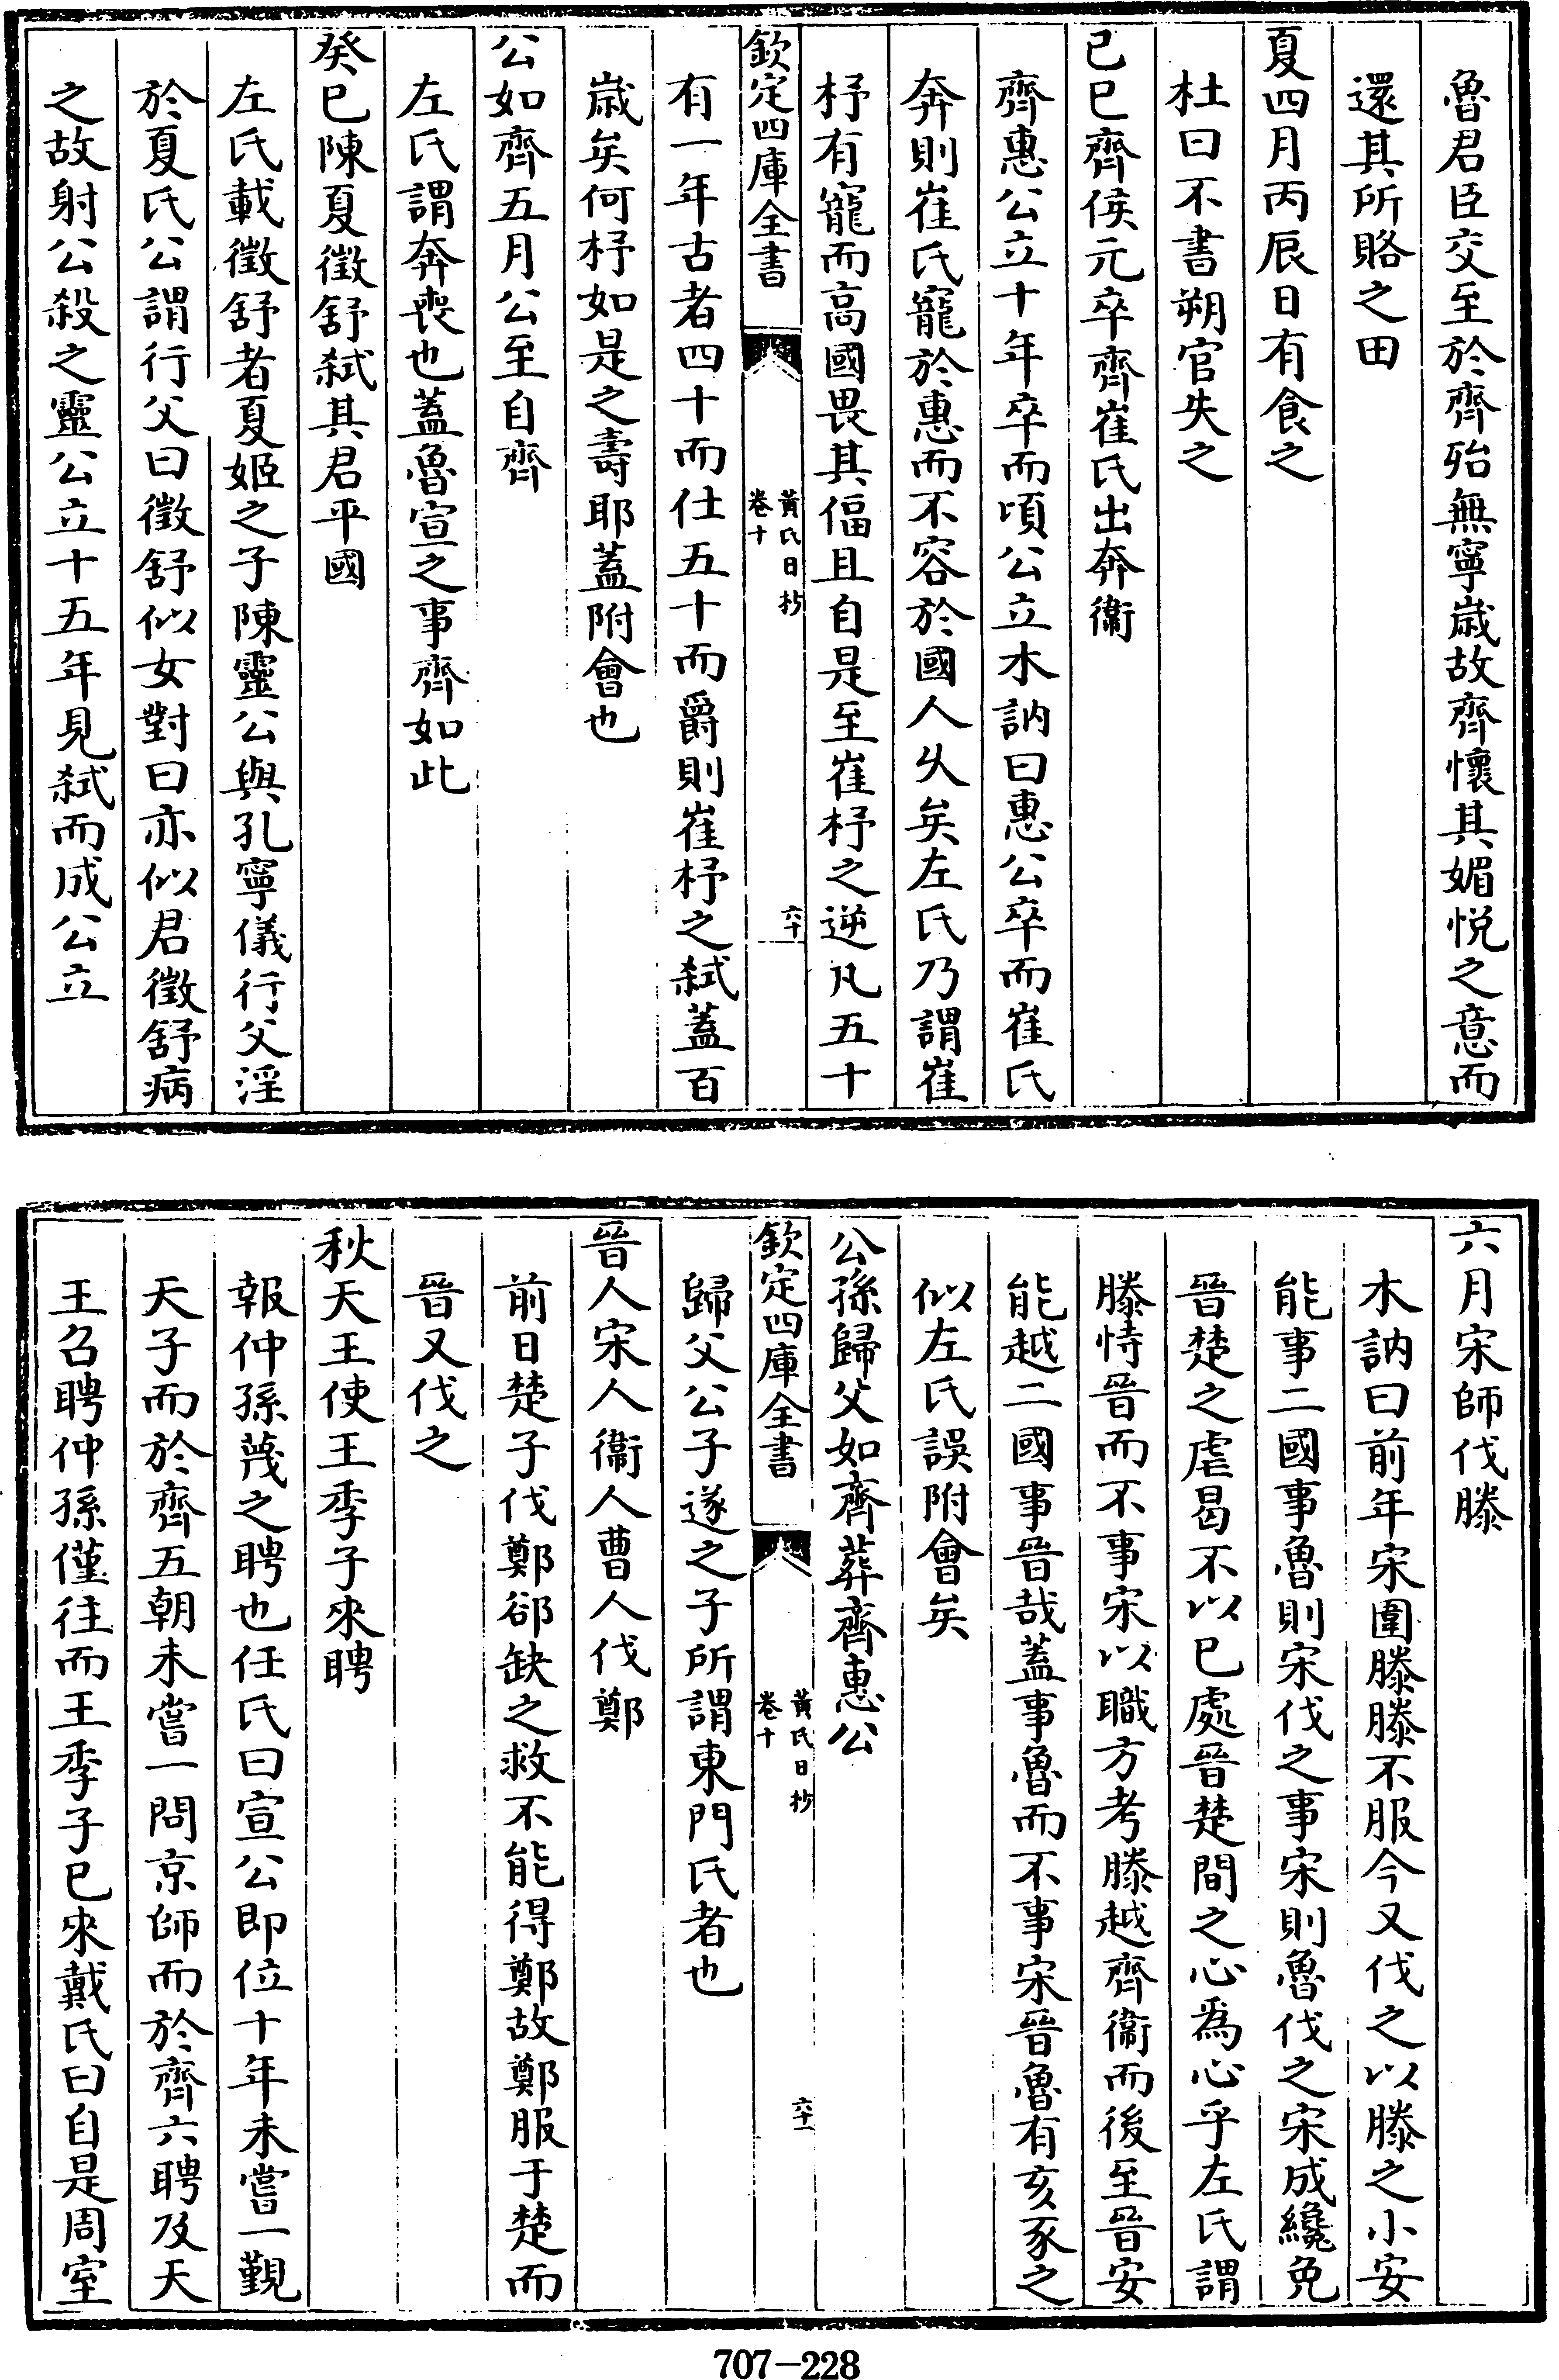 魯君臣交至於齊殆無寧歲故齊懷其媚悦之意而
還其所賂之田
夏四月丙辰日有食之
杜曰不書朔官失之
己巳齊侯元卒齊崔氏出奔衞
齊惠公立十年卒而頃公立木訥曰惠公卒而崔氏
奔則崔氏寵於惠而不容於國人乆矣左氏乃謂崔
杼有寵而高國畏其偪且自是至崔杼之逆凡五十
欽定四庫全書
黃氏日抄
卷十
六十
有一年古者四十而仕五十而爵則崔杼之弑蓋百
歲矣何杼如是之壽耶蓋附會也
公如齊五月公至自齊
左氏謂奔喪也蓋魯宣之事齊如此
癸巳陳夏徵舒弑其君平國
左氏載徵舒者夏姬之子陳靈公與孔寧儀行父淫
於夏氏公謂行父曰徵舒似女對曰亦似君徵舒病
之故射公殺之靈公立十五年見弑而成公立
六月宋師伐滕
木訥曰前年宋圍滕滕不服今又伐之以滕之小安
能事二國事魯則宋伐之事宋則魯伐之宋成纔免
晉楚之虐曷不以已處晉楚間之心爲心乎左氏謂
滕恃晉而不事宋以職方考滕越齊衞而後至晉安
能越二國事晉哉蓋事魯而不事宋晉魯有亥豕之
似左氏誤附會矣
公孫歸父如齊葬齊惠公
欽定四庫全書
黃氏日抄
卷十
六十一
歸父公子遂之子所謂東門氏者也
晉人宋人衞人曹人伐鄭
前日楚子伐鄭郤缺之救不能得鄭故鄭服于楚而
晉又伐之
秋天王使王季子來聘
報仲孫蔑之聘也任氏曰宣公即位十年未嘗一覲
天子而於齊五朝未嘗一問京師而於齊六聘及天
王召聘仲孫僅往而王季子已來戴氏曰自是周室
707-228